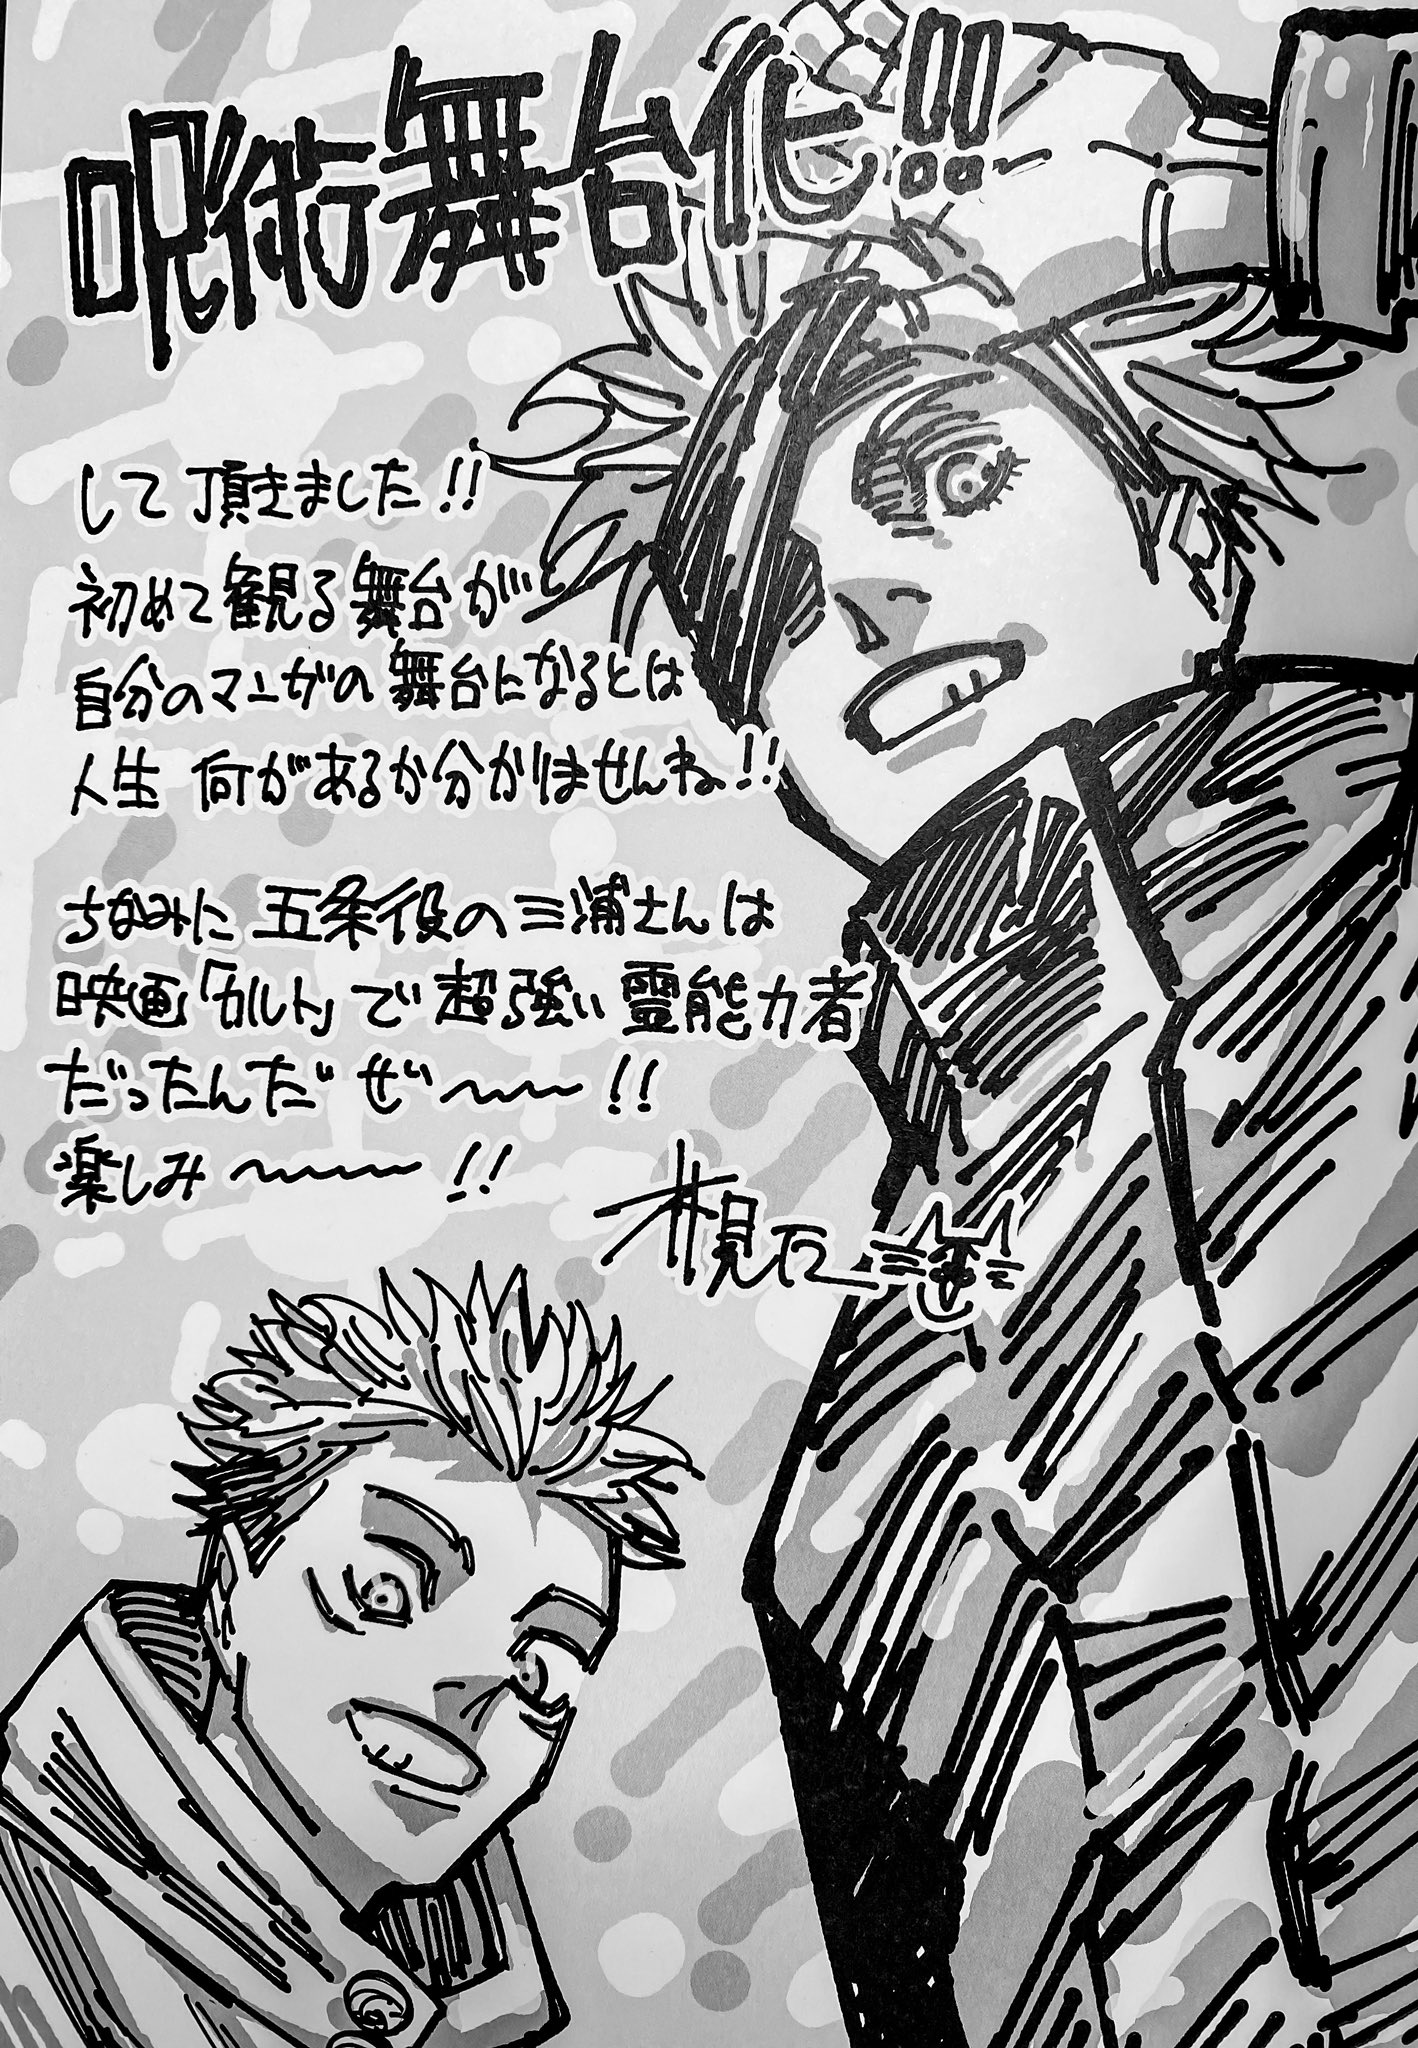 呪術舞台化!!
して頂きました!!
初めて観る舞台が
自分のマンガの舞台になるとは
人生 何があるか分かりませんね!!
ちなみに 五条役の三浦さんは
映画「カルト」で超強い霊能力者
だったんだぜ〜〜〜!!
楽しみ〜〜〜〜!!